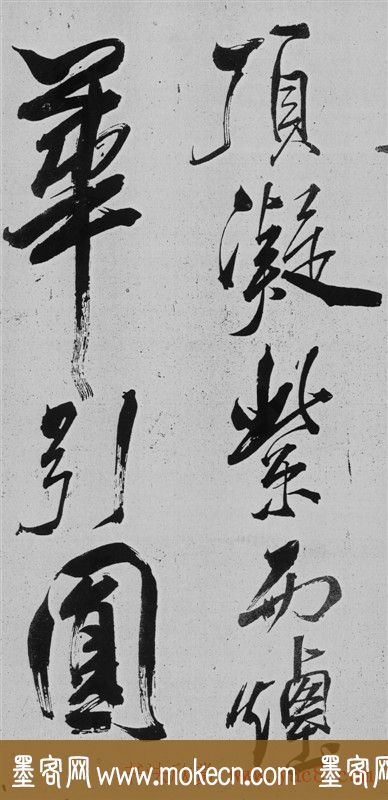 頂凝紫而煙
華引圓
墨客网 www.mokecn.com 墨客网